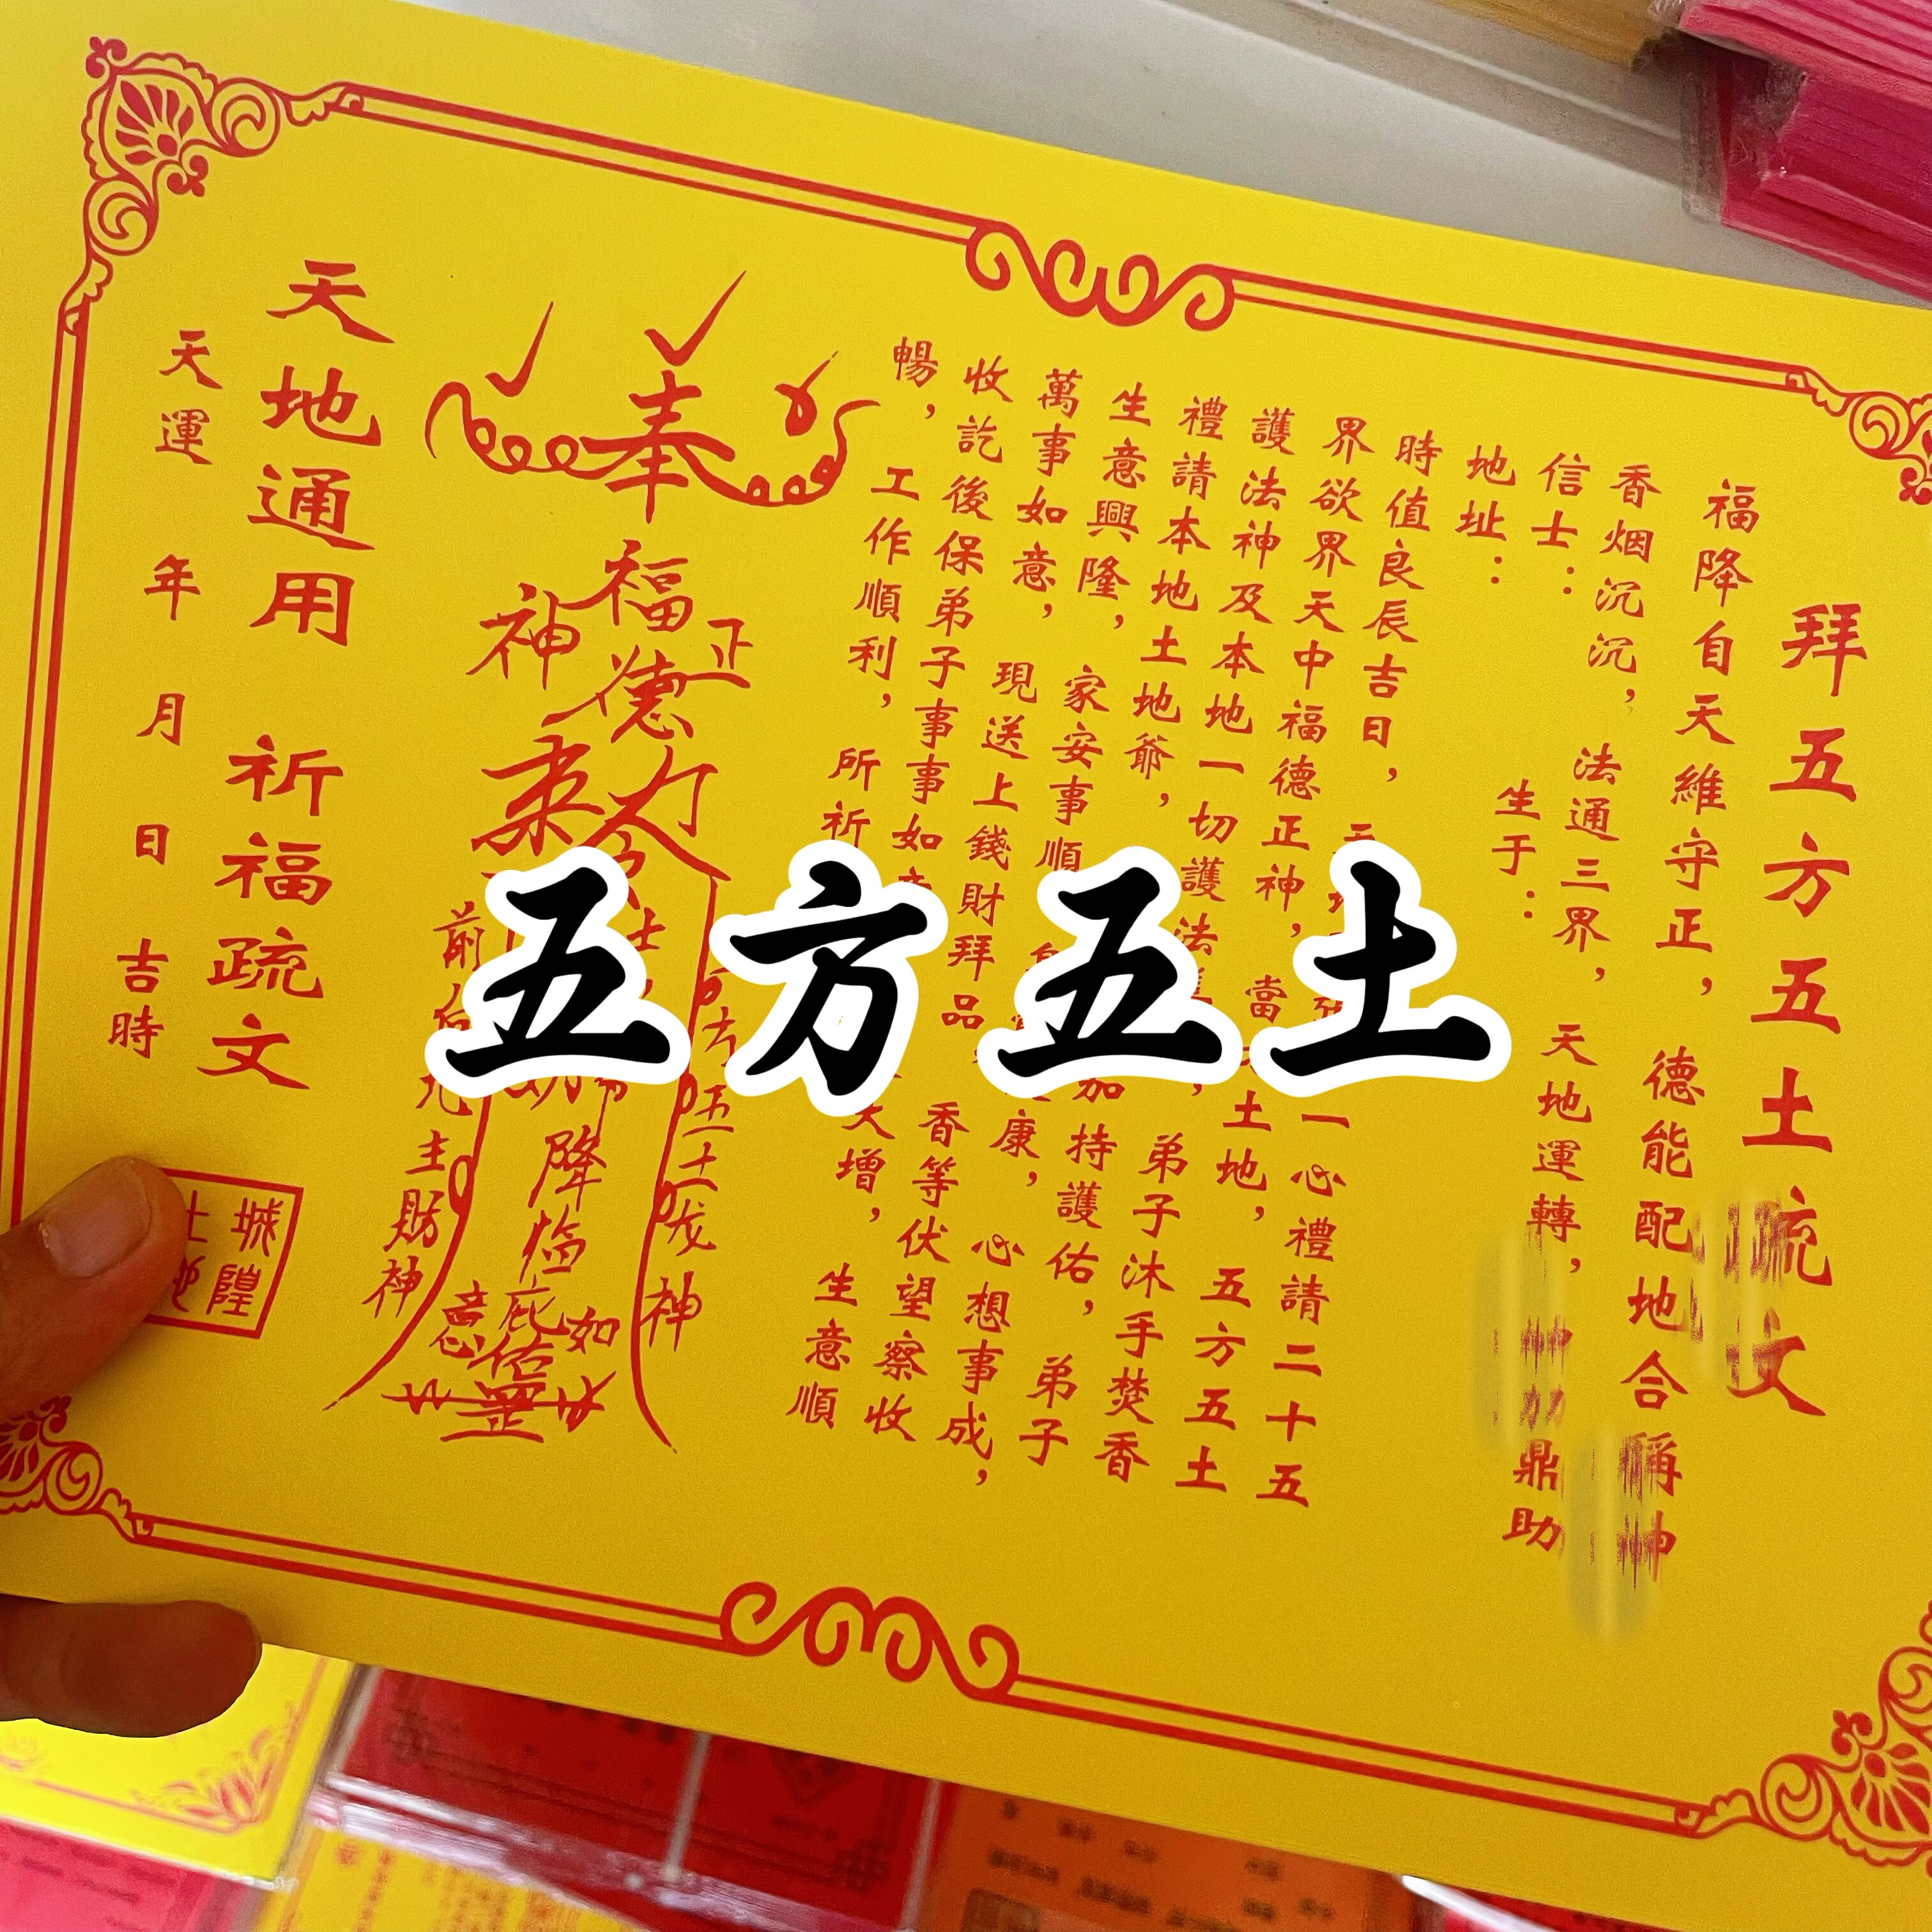 拜五方五土疏文
福降自天維守正，德能配地合稱神
香烟沉沉，法通三界，天地運轉，鼎助
信士： 生手：
地址：
時值良辰吉日，一心禮請二十五
界欲界天中福德正神，當土地，五方五土
護法神及本地一切護法，弟子沐手焚香
禮請本地土地爺，加持護佑，弟子
生意興隆，家安事順康，心想事成，
萬事如意，現送上錢財拜品，香等伏望察收
收訖後保弟子事事如大增，生意順
暢，工作順利，所祈
奉
福德正神
前
主財神
五土龙神
降臨庇佑
如意
天地通用 祈福疏文
天運 年 月 日 吉時
城隍
五方五土